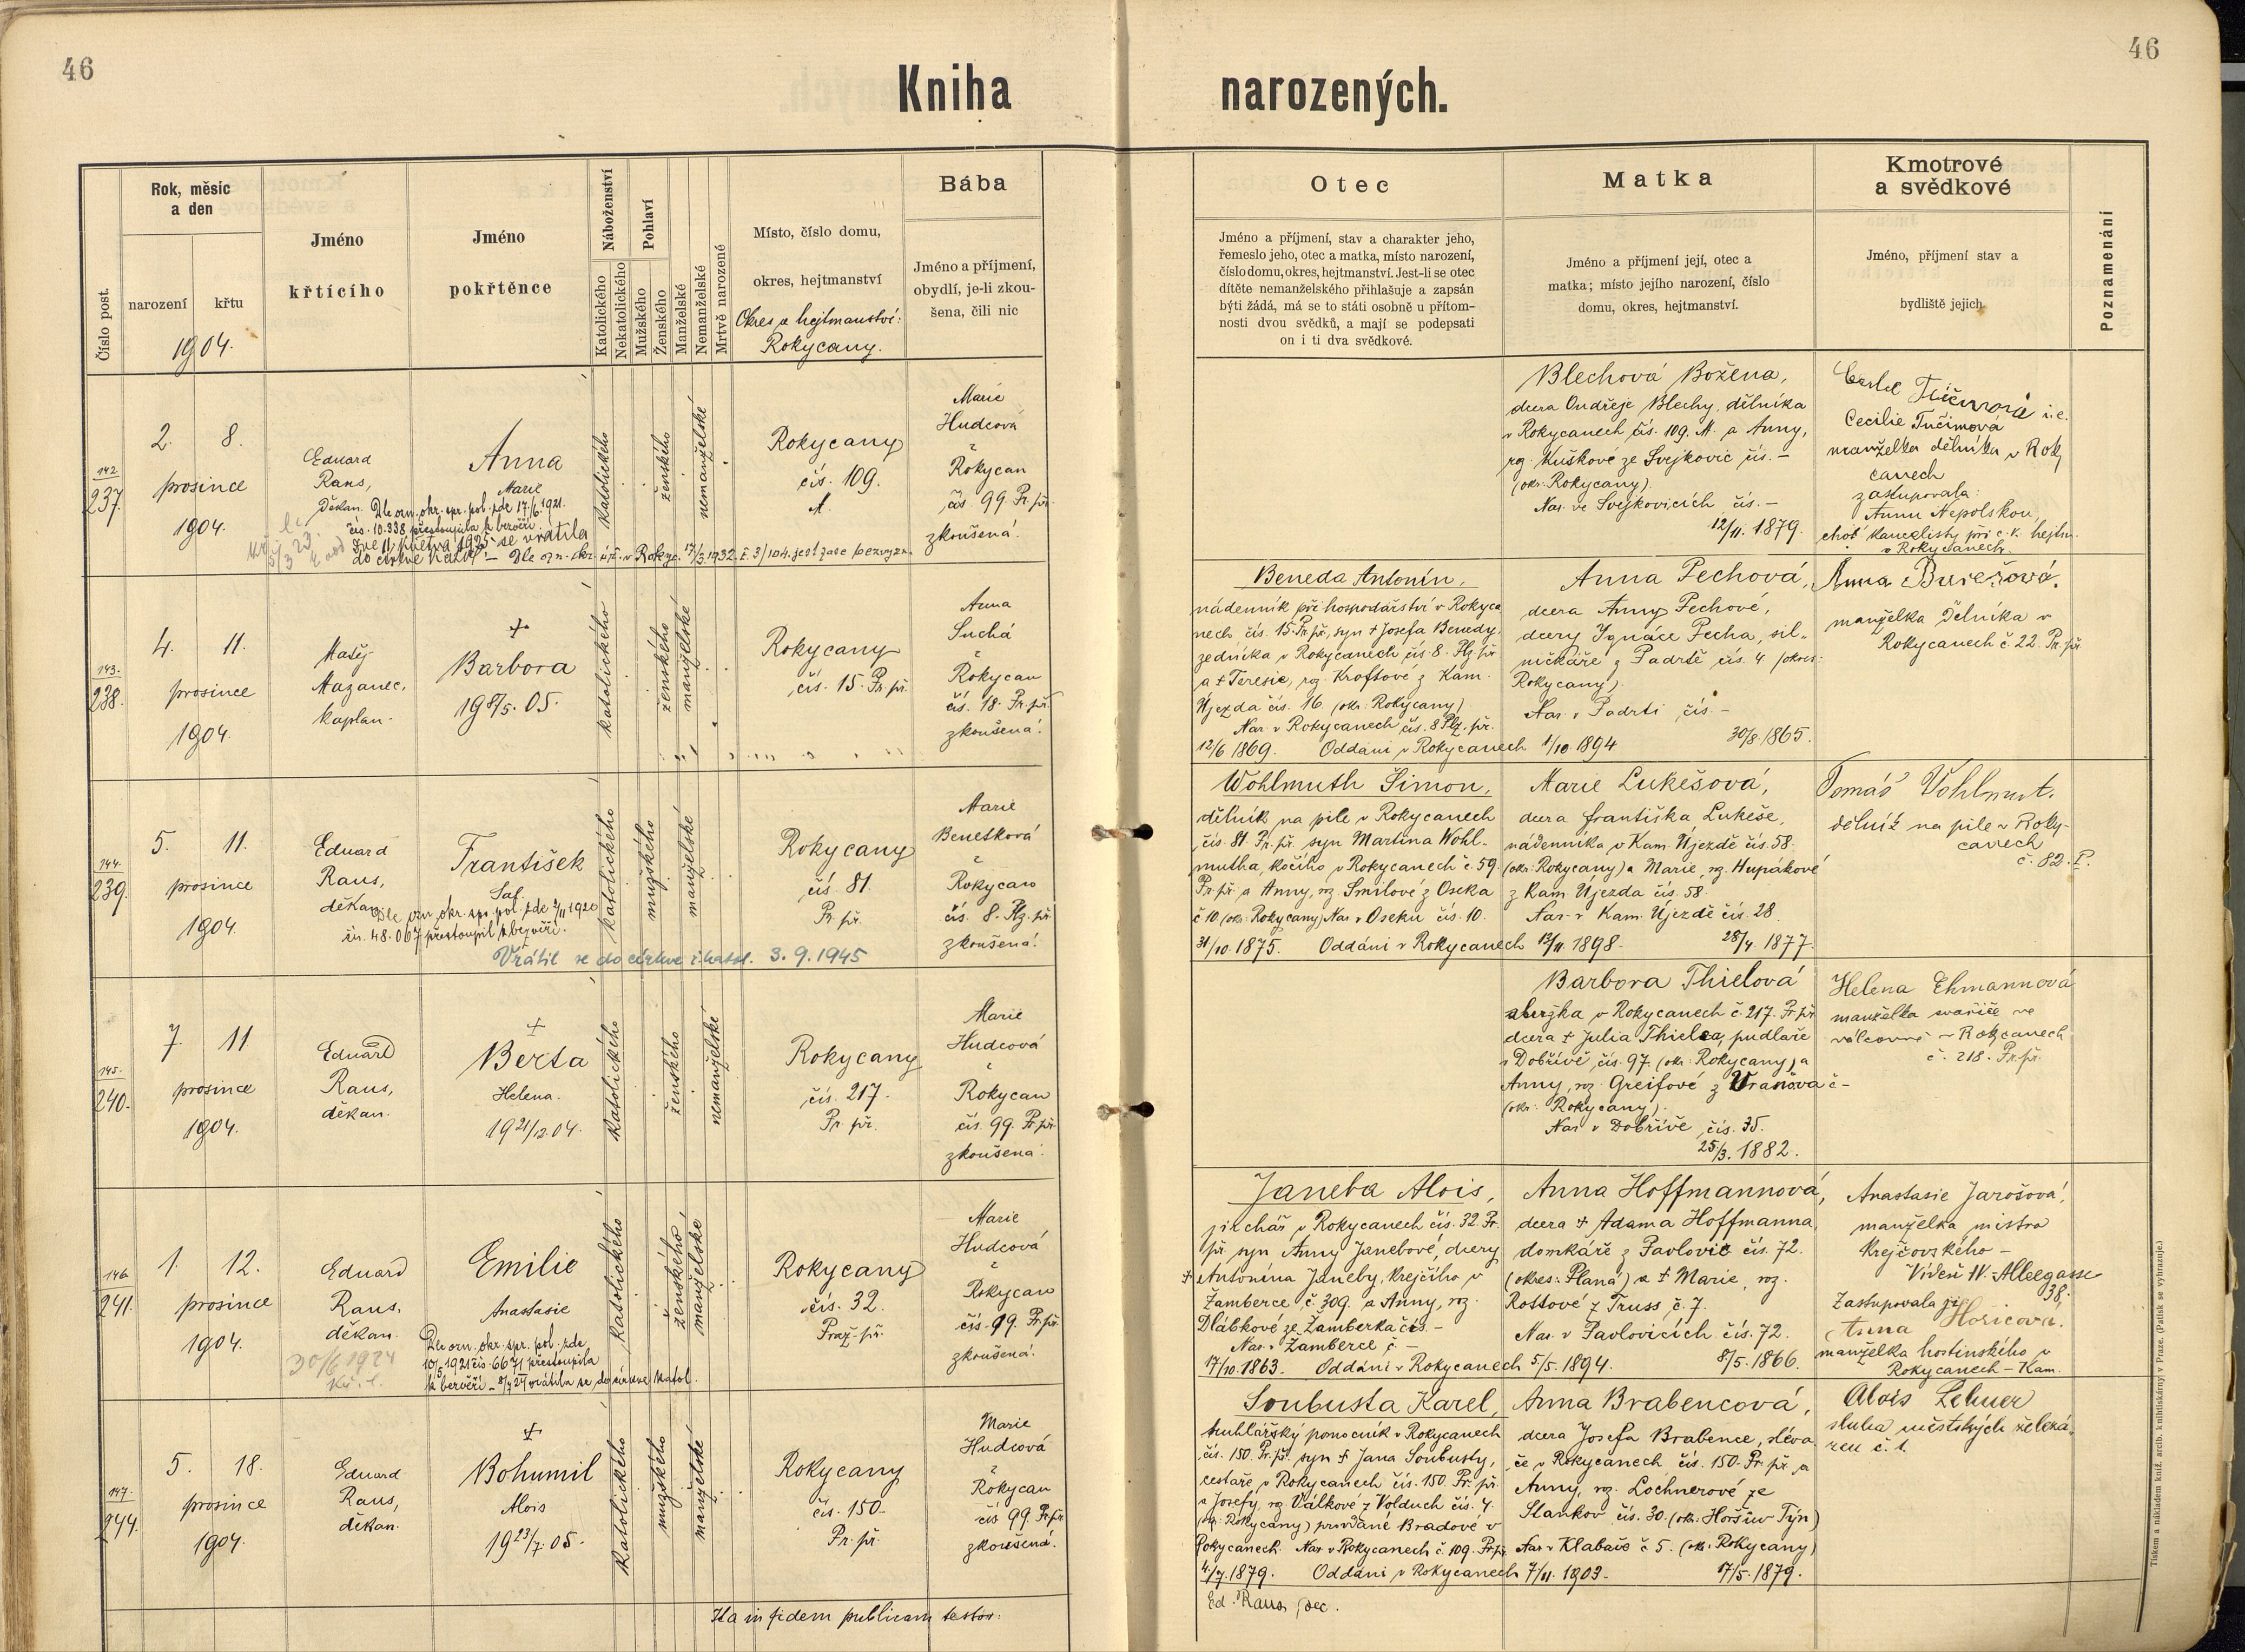 46
46
Kniha
narozených.
Číslo post.
Rok, měsíc
a den
narození
křtu
1904.
Jméno
křtícího
Jméno
pokřtěnce
Náboženství
Katolického
Nekatolického
Pohlaví
Mužského
Ženského
Manželské
Nemanželské
Mrtvě narozené
Místo, číslo domu,
okres, hejtmanství
Okres a hejtmanství:
Rokycany.
Bába
Jméno a příjmení,
obydlí, je-li zkou-
šena, čili nic
Otec
Jméno a příjmení, stav a charakter jeho,
řemeslo jeho, otec a matka, místo narození,
číslo domu, okres, hejtmanství. Jest-li se otec
dítěte nemanželského přihlašuje a zapsán
býti žádá, má se to státi osobně u přítom-
nosti dvou svědků, a mají se podepsati
on i ti dva svědkové.
Matka
Jméno a příjmení její, otec a
matka; místo jejího narození, číslo
domu, okres, hejtmanství.
Kmotrové
a svědkové
Jméno, příjmení stav a
bydliště jejich
Poznamenání
142.
237.
2. 8.
prosince
1904.
Eduard
Raus,
Děkan.
Anna
Marie
Dle ozn. okr. spr. pol. zde 17/6. 1921.
čís. 10.338 přestoupila k bezvěří.
Dne 11. května 1925 se vrátila
do církve katol. – Dle ozn. okr. úř. v Rokyc. 17/3. 1932 č. 3/104 jest zase bezvyzn.
katolického
ženského
nemanželské
Rokycany
čís. 109.
M.
Marie
Hudcová
z
Rokycan
čís 99 Pr. př.
zkoušená!
Blechová Božena,
dcera Ondřeje Blechy, dělníka
v Rokycanech čís. 109. M. a Anny,
roz. Kuškové ze Svejkovic čís. –
(okr. Rokycany).
Nar. ve Svejkovicích čís. –
12/11. 1879.
Tučimová i. e.
Cecilie Tučimová
manželka dělníka v Roky
canech
zastupovala:
Annu Nepolskou,
choť kancelisty při c. k. hejtm.
v Rokycanech.
143.
238.
4. 11.
prosince
1904.
Matěj
Mazanec,
kaplan.
+
Barbora
19 8/5. 05.
katolického
ženského
manželské
Rokycany
čís. 15. Pr. př.
Anna
Suchá
z
Rokycan
čís. 18. Pr. př.
zkoušená!
Beneda Antonín,
nádenník při hospodářství v Rokyca
nech, čís. 15. Pr. př., syn + Josefa Benedy,
zedníka v Rokycanech čís. 8. Plz. př.
a + Teresie, roz. Kroftové z Kam.
Újezda čís. 16. (okr. Rokycany)
Nar. v Rokycanech čís. 8 Plz. př.
12/6 1869. Oddáni v Rokycanech 1/10 1894
Anna Pechová,
dcera Anny Pechové,
dcery Ignáce Pecha, sil-
ničkáře z Padrtě čís. 4 (okres:
Rokycany).
Nar. v Padrti čís. –
30/8. 1865.
Anna Burešová.
manželka Dělníka v
Rokycanech č. 22. Pr. př.
144.
239.
5. 11.
prosince
1904.
Eduard
Raus,
děkan.
František
Saf.
Dle ozn. okr. spr. pol. zde 2/11 1920
čís. 48.067 přestoupil k bezvěří.
Vrátil se do církve ř. katol. 3. 9. 1945
katolického
mužského
manželské
Rokycany
čís. 81.
Pr. př.
Marie
Benetková
z
Rokycan
čís. 8. Plz. př.
zkoušená!
Wohlmuth Šimon,
dělník na pile v Rokycanech
čís. 81. Pr. př. syn Martina Wohl-
mutha, kočího v Rokycanech č. 59.
Pr. př. a Anny, roz. Smilové z Oseka
č 10 (okr. Rokycany) Nar. v Oseku čís. 10.
31/10. 1875. Oddáni v Rokycanech 12/11. 1898.
Marie Lukešová,
dcera Františka Lukeše,
nádenníka v Kam. Újezdě čís. 58.
(okr. Rokycany) a Marie, roz. Hupákové
z Kam. Újezda čís. 58.
Nar. v Kam. Újezdě čís. 28.
28/4. 1877.
Tomáš Wohlmut.
dělník na pile v Roky-
canech
č. 82. P.
145.
240.
7. 11
prosince
1904.
Eduard
Raus,
děkan.
+
Berta
Helena.
19 21/12. 04.
katolického
ženského
nemanželské
Rokycany
čís. 217.
Pr. př.
Marie
Hudcová
z
Rokycan
čís. 99. Pr. př.
zkoušená!
Barbora Thielová
v Rokycanech č. 217. Pr. př.
dcera + Julia Thielea, pudlaře
v Dobřívě, čís. 97. (okr. Rokycany) a
Anny, roz. Greifové z Vranova č –
(okr. Rokycany).
Nar. v Dobřívě, čís. 35.
25/3. 1882.
Helena Ehmannová
manželka svářiče ve
válcovně v Rokycanech
č. 218. Pr. př.
146
241.
1. 12.
prosince
1904.
Eduard
Raus,
děkan.
30/6 1924
Emilie
Anastasie
Dle ozn. okr. spr. pol. zde
10/5 1921 čís. 6671 přestoupila
k bezvěří – vrátila se do církve katol.
katolického
ženského
manželské
Rokycany
čís. 32.
Praž. př.
Marie
Hudcová
z
Rokycan
čís. 99. Pr. př.
zkoušená!
Janeba Alois,
jirchář v Rokycanech čís. 32. Pr.
př. syn Anny Janebové, dcery
+ Antonína Janeby, krejčího v
Žamberce, č. 309. a Anny, roz.
Dlábkové ze Žamberka čís. –
Nar. v Žamberce č. –
17/10. 1863. Oddáni v Rokycanech 5/5. 1894.
Anna Hoffmannová,
dcera + Adama Hoffmanna,
domkáře z Pavlovic čís. 72.
(okres: Planá) a + Marie, roz.
Rottové z Truss, č. 7.
Nar. v Pavlovicích čís. 72.
8/5. 1866.
Anastasie Jarošová,
manželka mistra
krejčovského –
Vídeň IV.-Alleegasse
38.
Zastupovala ji
Anna Hořicová.
manželka hostinského v
Rokycanech – Kam.
147.
244.
5. 18.
prosince
1904.
Eduard
Raus,
děkan.
+
Bohumil
Alois
19 23/7. 05.
katolického
mužského
manželské
Rokycany
čís. 150.
Pr. př.
Marie
Hudcová
z
Rokycan
čís 99. Pr. př.
zkoušená!
Soubusta Karel,
truhlářský pomocník v Rokycanech
čís. 150. Pr. př. syn + Jana Soubusty,
cestaře v Rokycanech čís. 150. Pr. př.
a Josefy, roz. Válkové z Volduch čís. 4.
(okr. Rokycany) provdané Bradové v
Rokycanech. Nar. v Rokycanech č. 109. Pr. př.
4/7. 1879. Oddáni v Rokycanech 7/11. 1903.
Anna Brabencová,
dcera Josefa Brabence, sléva
če v Rokycanech čís. 150. Pr. př. a
Anny, roz. Lochnerové ze
Stankov čís. 30. (okr. Horšův Týn)
Nar. v Klabavě č 5. (okr. Rokycany)
17/5. 1879.
Alois Lehner
sluha městských železá-
ren č. 1.
Ita in fidem publicam testor:
Ed. Raus, dec.
Tiskem a nákladem kníž. arcib. knihtiskárny v Praze. (Patisk se vyhrazuje.)